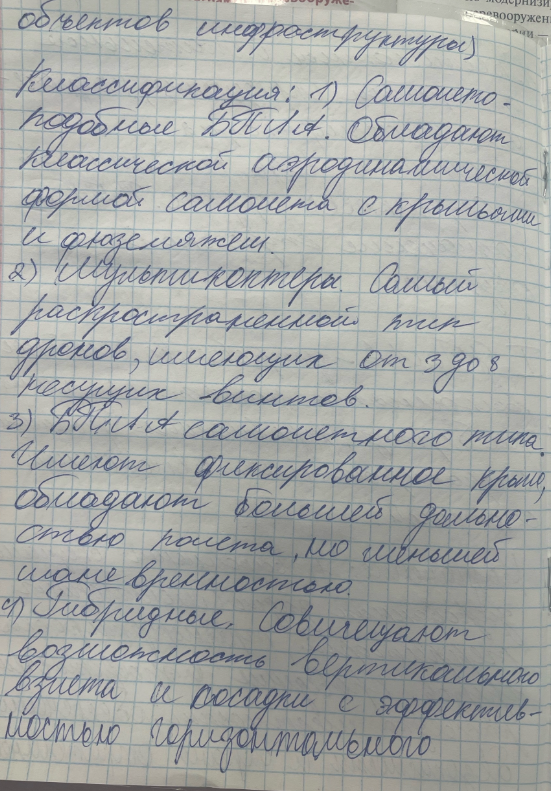 модернизи
объектов инфраструктуры)
Классификация: 1) Самолето-
подобные БПЛА. Обладают
классической аэродинамической
формой самолета с крыльями
и фюзеляжем.
2) Мультикоптеры. Самый
распространенной тип
дронов, имеющих от 3 до 8
несущих винтов.
3) БПЛА самолетного типа.
Имеют фиксированное крыло,
обладают большей дально-
стью полета, но меньшей
маневренностью.
4) Гибридные. Совмещают
возможность вертикального
взлета и посадки с эффектив-
ностью горизонтального